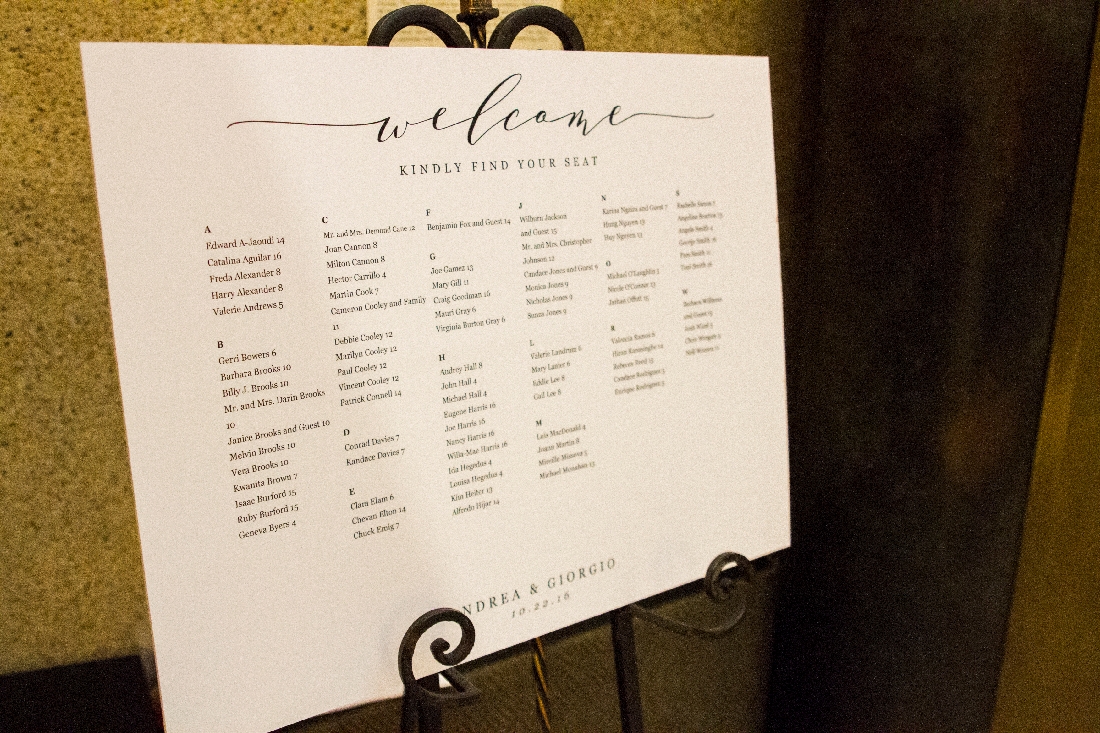 welcome
KINDLY FIND YOUR SEAT
A
Edward A-Jaoudi 14
Catalina Aguilar 16
Freda Alexander 8
Harry Alexander 8
Valerie Andrews 5
B
Gerri Bowers 6
Barbara Brooks 10
Billy J. Brooks 10
Mr. and Mrs. Darin Brooks
10
Janice Brooks and Guest 10
Melvin Brooks 10
Vera Brooks 10
Kwanita Brown 7
Isaac Burford 15
Ruby Burford 15
Geneva Byers 4
C
Mr. and Mrs. Demond Cane 12
Joan Cannon 8
Milton Cannon 8
Hector Carrillo 4
Martin Cook 7
Cameron Cooley and Family
11
Debbie Cooley 12
Marilyn Cooley 12
Paul Cooley 12
Vincent Cooley 12
Patrick Connell 14
D
Conrad Davies 7
Kandace Davies 7
E
Clara Elam 6
Chevan Elton 14
Chuck Emig 7
F
Benjamin Fox and Guest 14
G
Joe Gamez 13
Mary Gill 11
Craig Goodman 16
Mauri Gray 6
Virginia Burton Gray 6
H
Audrey Hall 8
John Hall 4
Michael Hall 4
Eugene Harris 16
Joe Harris 16
Nancy Harris 16
Willa-Mae Harris 16
Iria Hegedus 4
Louisa Hegedus 4
Kim Heiter 13
Alfredo Hijar 14
J
Wilburn Jackson
and Guest 15
Mr. and Mrs. Christopher
Johnson 12
Candace Jones and Guest 6
Monica Jones 9
Nicholas Jones 9
Sunza Jones 9
L
Valerie Landrum 6
Mary Lanier 6
Eddie Lee 8
Gail Lee 8
M
Lois MacDonald 4
Joann Martin 8
Mireille Monova 5
Michael Monahan 13
N
Karina and Guest 7
Hung Nguyen 13
Huy Nguyen 13
O
Michael O'Loughlin 5
Nicole O'Connor 13
Offutt 15
R
Valencia Ramos 6
Rebecca Reed
Rodriguez 5
Enrique Rodriguez 5
S
Angela Smith 4
George Smith 16
Pam Smith 11
Toni Smith 16
W
Barbara Williams
and Guest
NDREA & GIORGIO
10.22.16